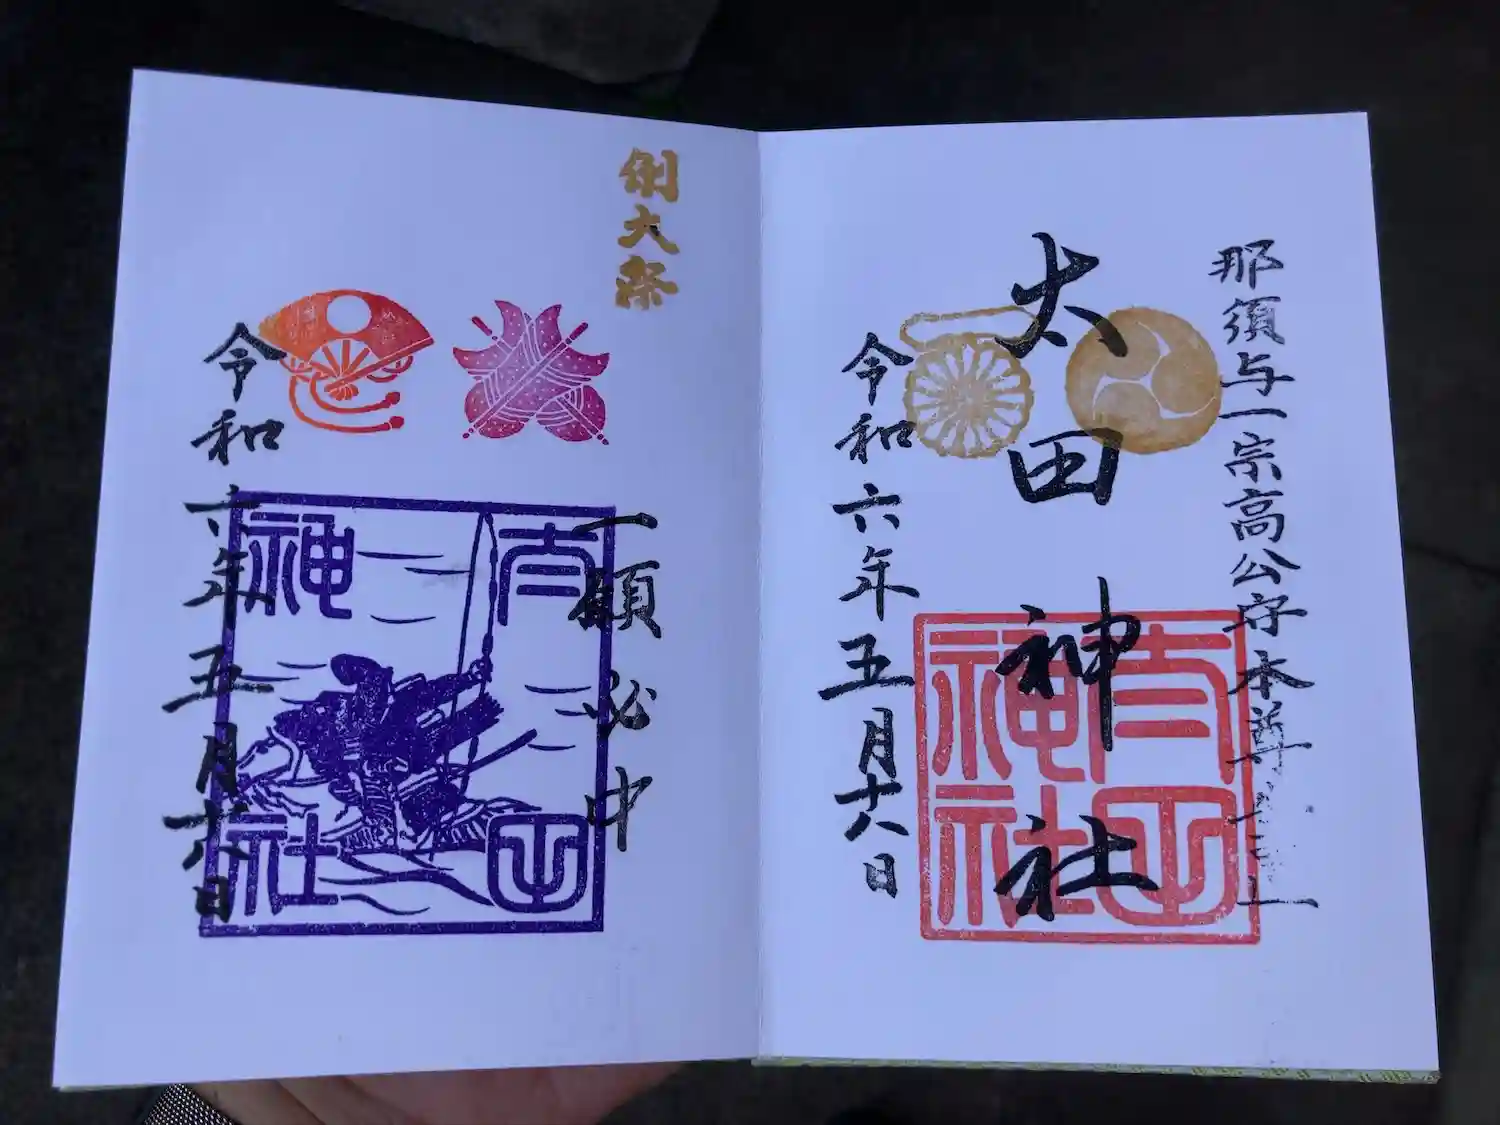 那須与一宗高公守本尊
太田神社
太田神社
令和六年五月十八日
例大祭
一願必中
太田神社
令和六年五月十八日